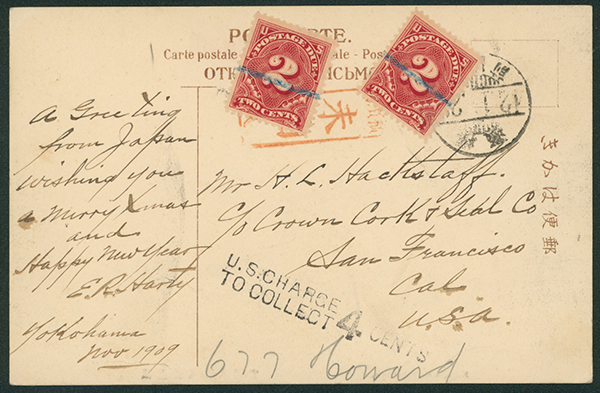 PO CARTE.
Carte postale ale - Post
ОТК ИСЬМО
U S
POSTAGE DUE
2
TWO CENTS
U S
POSTAGE DUE
2
TWO CENTS
未
きかは便郵
A Greeting
from Japan
wishing you
a Merry Xmas
and
Happy New Year
E.R. Harty
Yokohama
Nov 1909
Mr H. L. Hackstaff.
c/o Crown Cork & Seal Co
San Francisco
Cal
U.S.A.
U.S. CHARGE
TO COLLECT 4 CENTS
677 Howard.